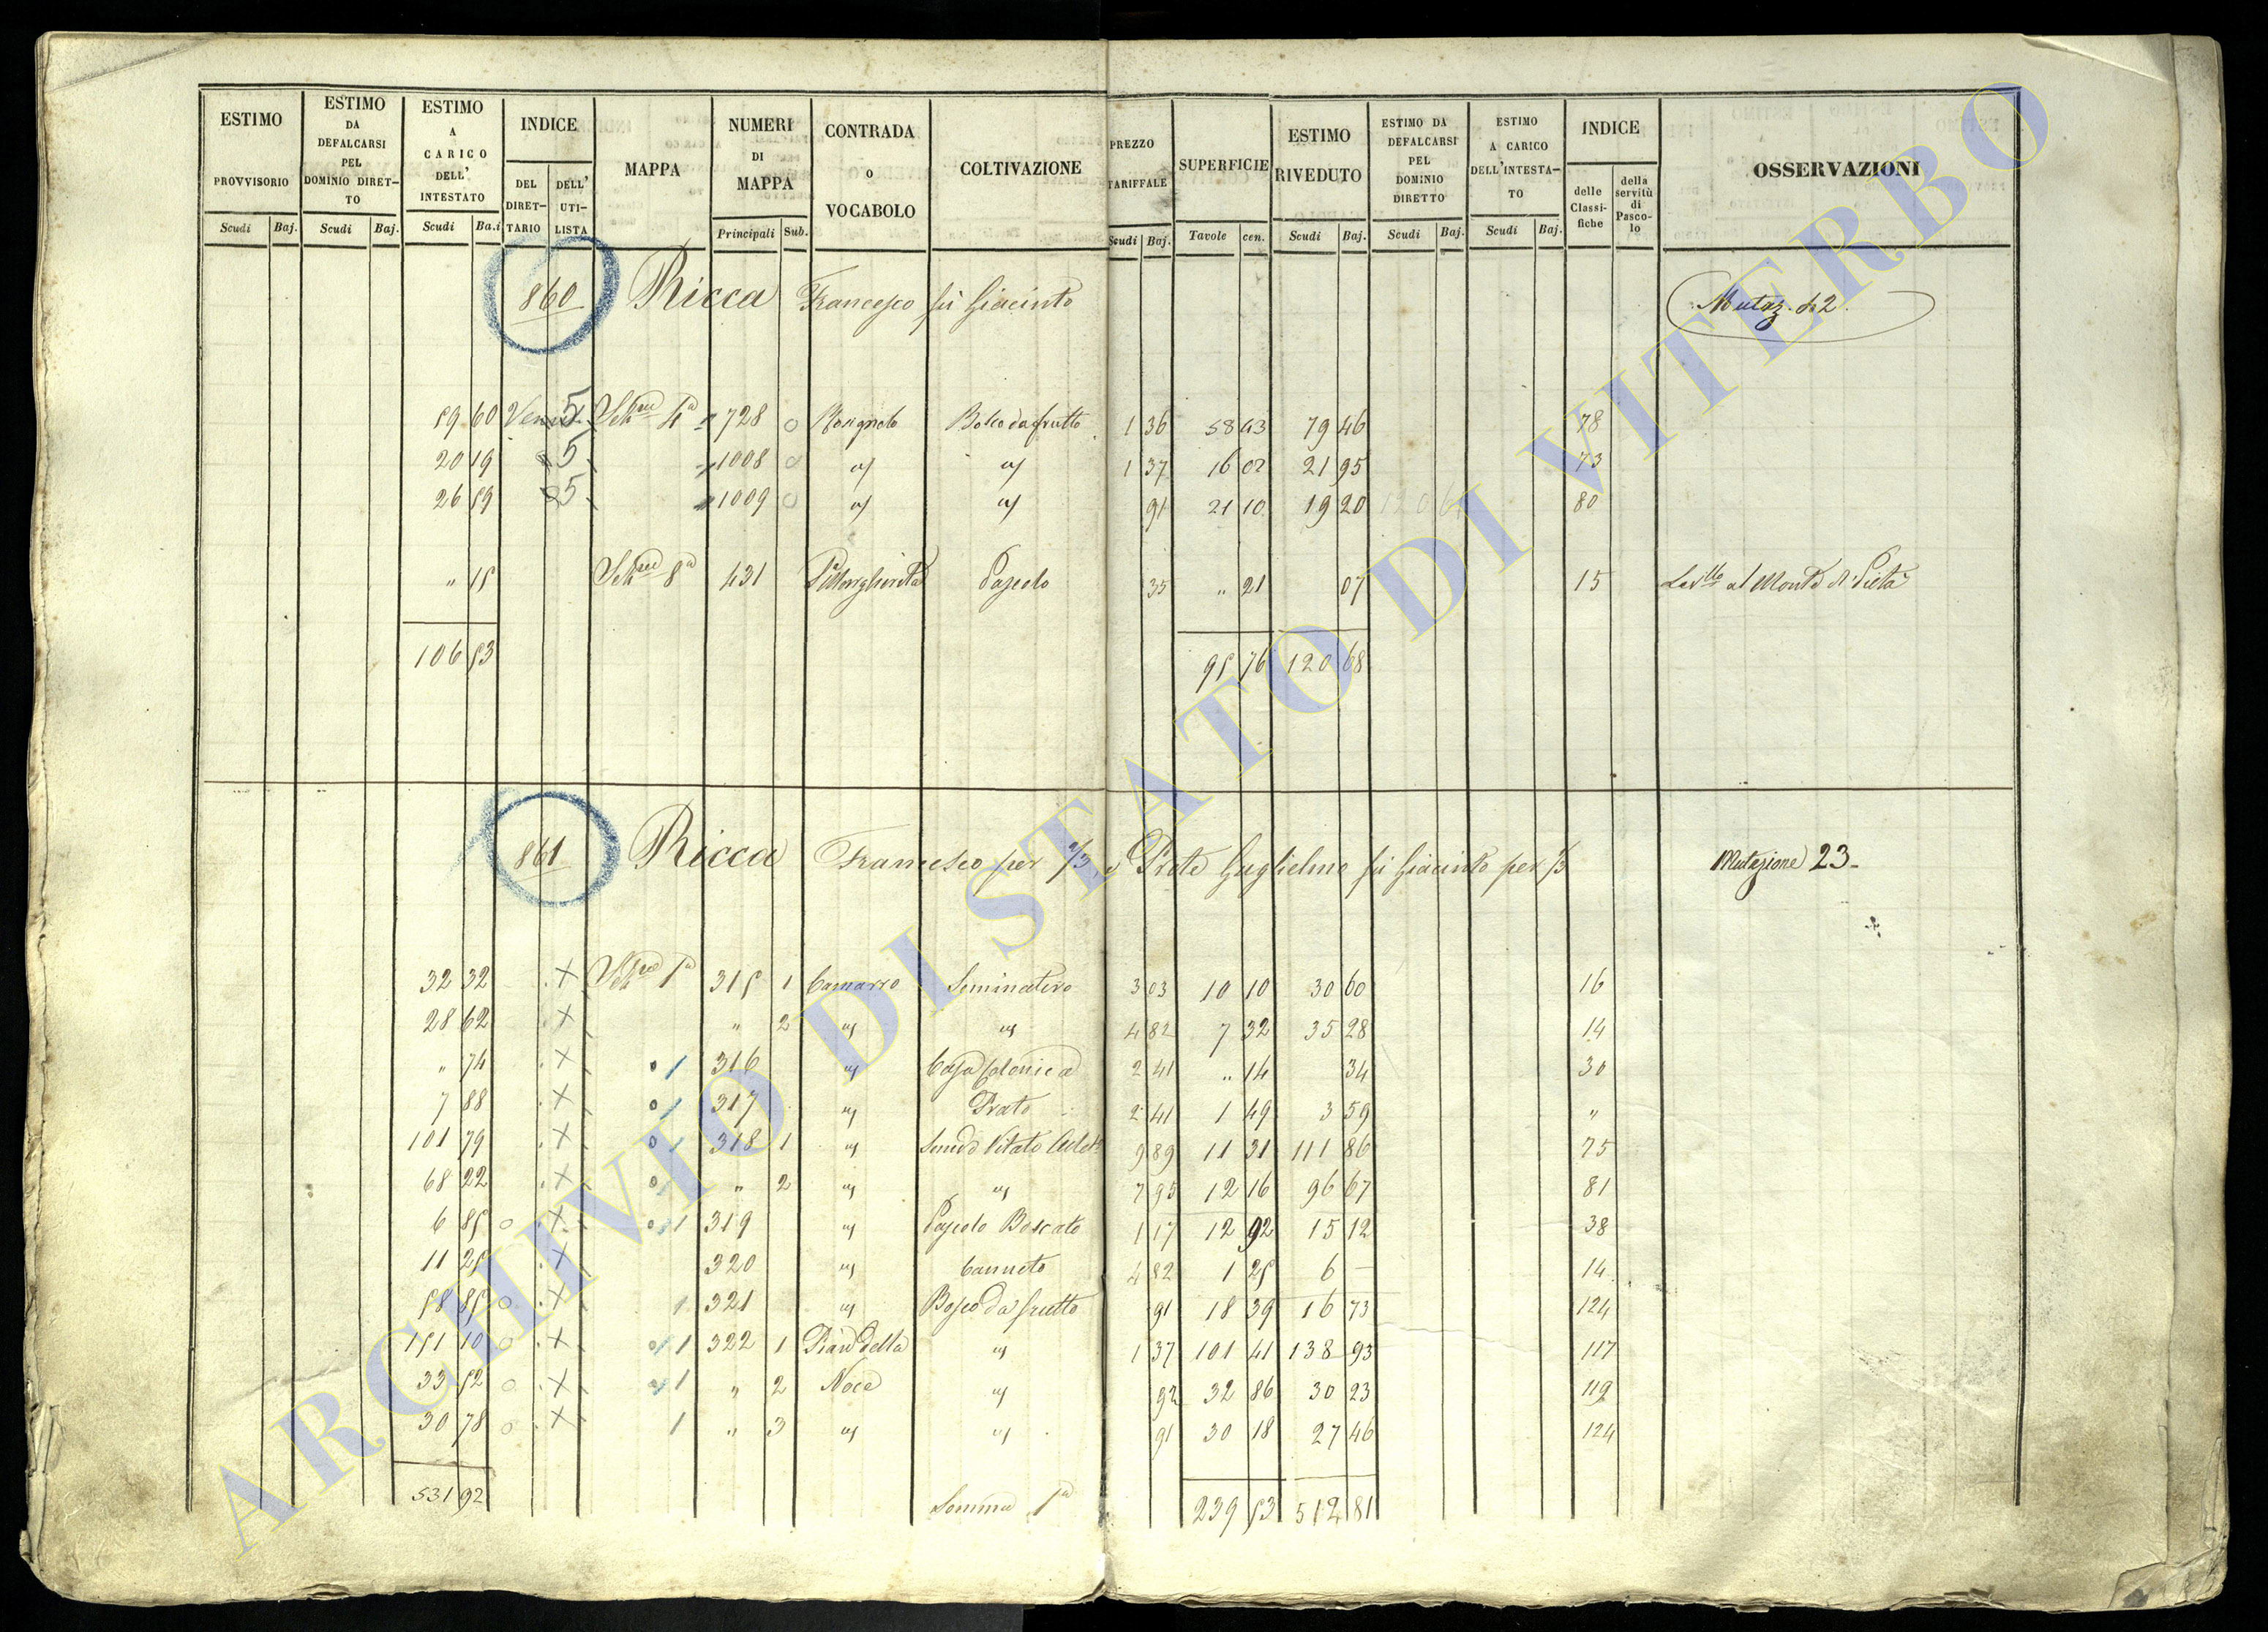 ESTIMO PROVVISORIO Scudi Baj.
ESTIMO DA DEFALCARSI PEL DOMINIO DIRET-TO Scudi Baj.
ESTIMO A CARICO DELL' INTESTATO Scudi Ba.i
INDICE DEL DIRET-TARIO DELL' UTI-LISTA
MAPPA
NUMERI DI MAPPA Principali Sub.
CONTRADA o VOCABOLO
COLTIVAZIONE
PREZZO TARIFFALE Scudi Baj.
SUPERFICIE Tavole cen.
ESTIMO RIVEDUTO Scudi Baj.
ESTIMO DA DEFALCARSI PEL DOMINIO DIRETTO Scudi Baj.
ESTIMO A CARICO DELL'INTESTA-TO Scudi Baj.
INDICE delle Classi-fiche della servitù di Pasco-lo
OSSERVAZIONI
860 Ricca Francesco fù Giacinto Mutaz. di 2
59 60 5 Sehne 4a 728 0 Rosignolo Bosco da frutto 1 36 58 43 79 46 78
20 19 5 1008 0 " " 1 37 16 02 21 95 73
26 59 5 1009 0 " " 91 21 10 19 20 80
" 15 8a 431 Pascolo 35 " 21 07 15 al Monte di Pietà
106 53 95 76 120 68
861 Ricca Francesco per 2/3 e Prete Guglielmo fù Giacinto per 1/3 Mutazione 23
32 32 X 1a 315 1 Camarro Seminativo 3 03 10 10 30 60 16
28 62 X " 2 " " 4 82 7 32 35 28 14
" 74 X 0 1 316 " Casa Colonica 2 41 " 14 34 30
7 88 X 0 1 317 " Prato 2 41 1 49 3 59 "
101 79 X 0 1 318 1 " Vitato 9 89 11 31 111 86 75
68 22 X 0 1 " 2 " " 7 95 12 16 96 67 81
6 85 0 X 0 1 319 " Pascolo Boscato 1 17 12 92 15 12 38
11 25 X 320 " Canneto 4 82 1 25 6 — 14
58 85 0 X 1 321 " Bosco da frutto 91 18 39 16 73 124
151 10 0 X 0 1 322 1 Piano della " 1 37 101 41 138 93 117
33 52 0 X 0 1 " 2 Noce " 92 32 86 30 23 119
30 78 0 X 1 " 3 " " 91 30 18 27 46 124
531 92 Somma 1a 239 53 512 81
ARCHIVIO DI STATO DI VITERBO